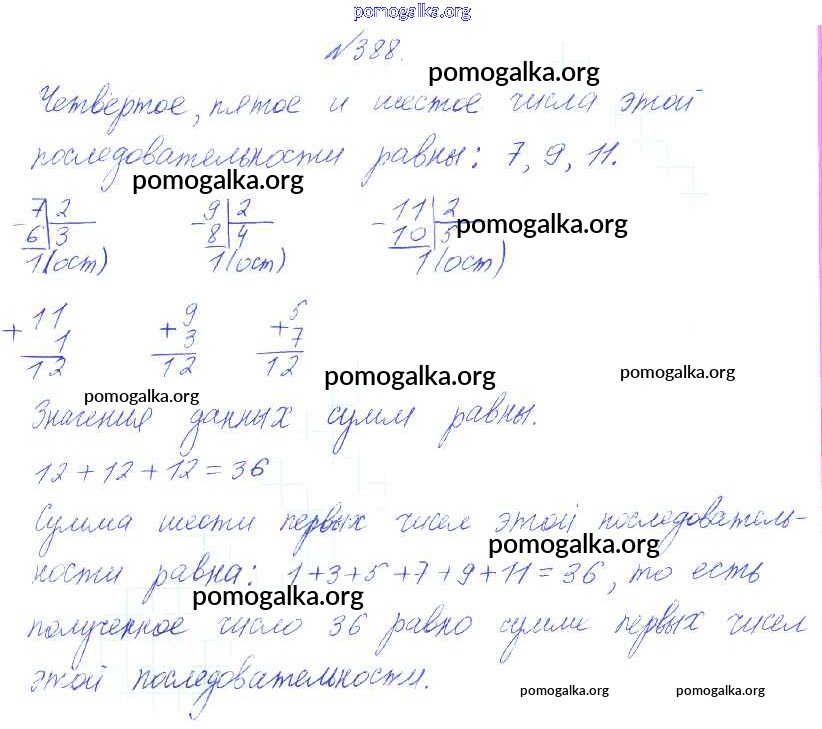 pomogalka.org
№388.
pomogalka.org
Четвертое, пятое и шестое числа этой
последовательности равны: 7, 9, 11.
pomogalka.org
7|2 9|2 11|2
pomogalka.org
-6|3 -8|4 -10|5
1(ост) 1(ост) 1(ост)
11 9 5
+ 1 + 3 + 7
12 12 12
pomogalka.org pomogalka.org
pomogalka.org
Значения данных сумм равны.
12+12+12=36
Сумма шести первых чисел этой последователь-
pomogalka.org
ности равна: 1+3+5+7+9+11=36, то есть
pomogalka.org
полученное число 36 равно сумме первых чисел
этой последовательности.
pomogalka.org pomogalka.org